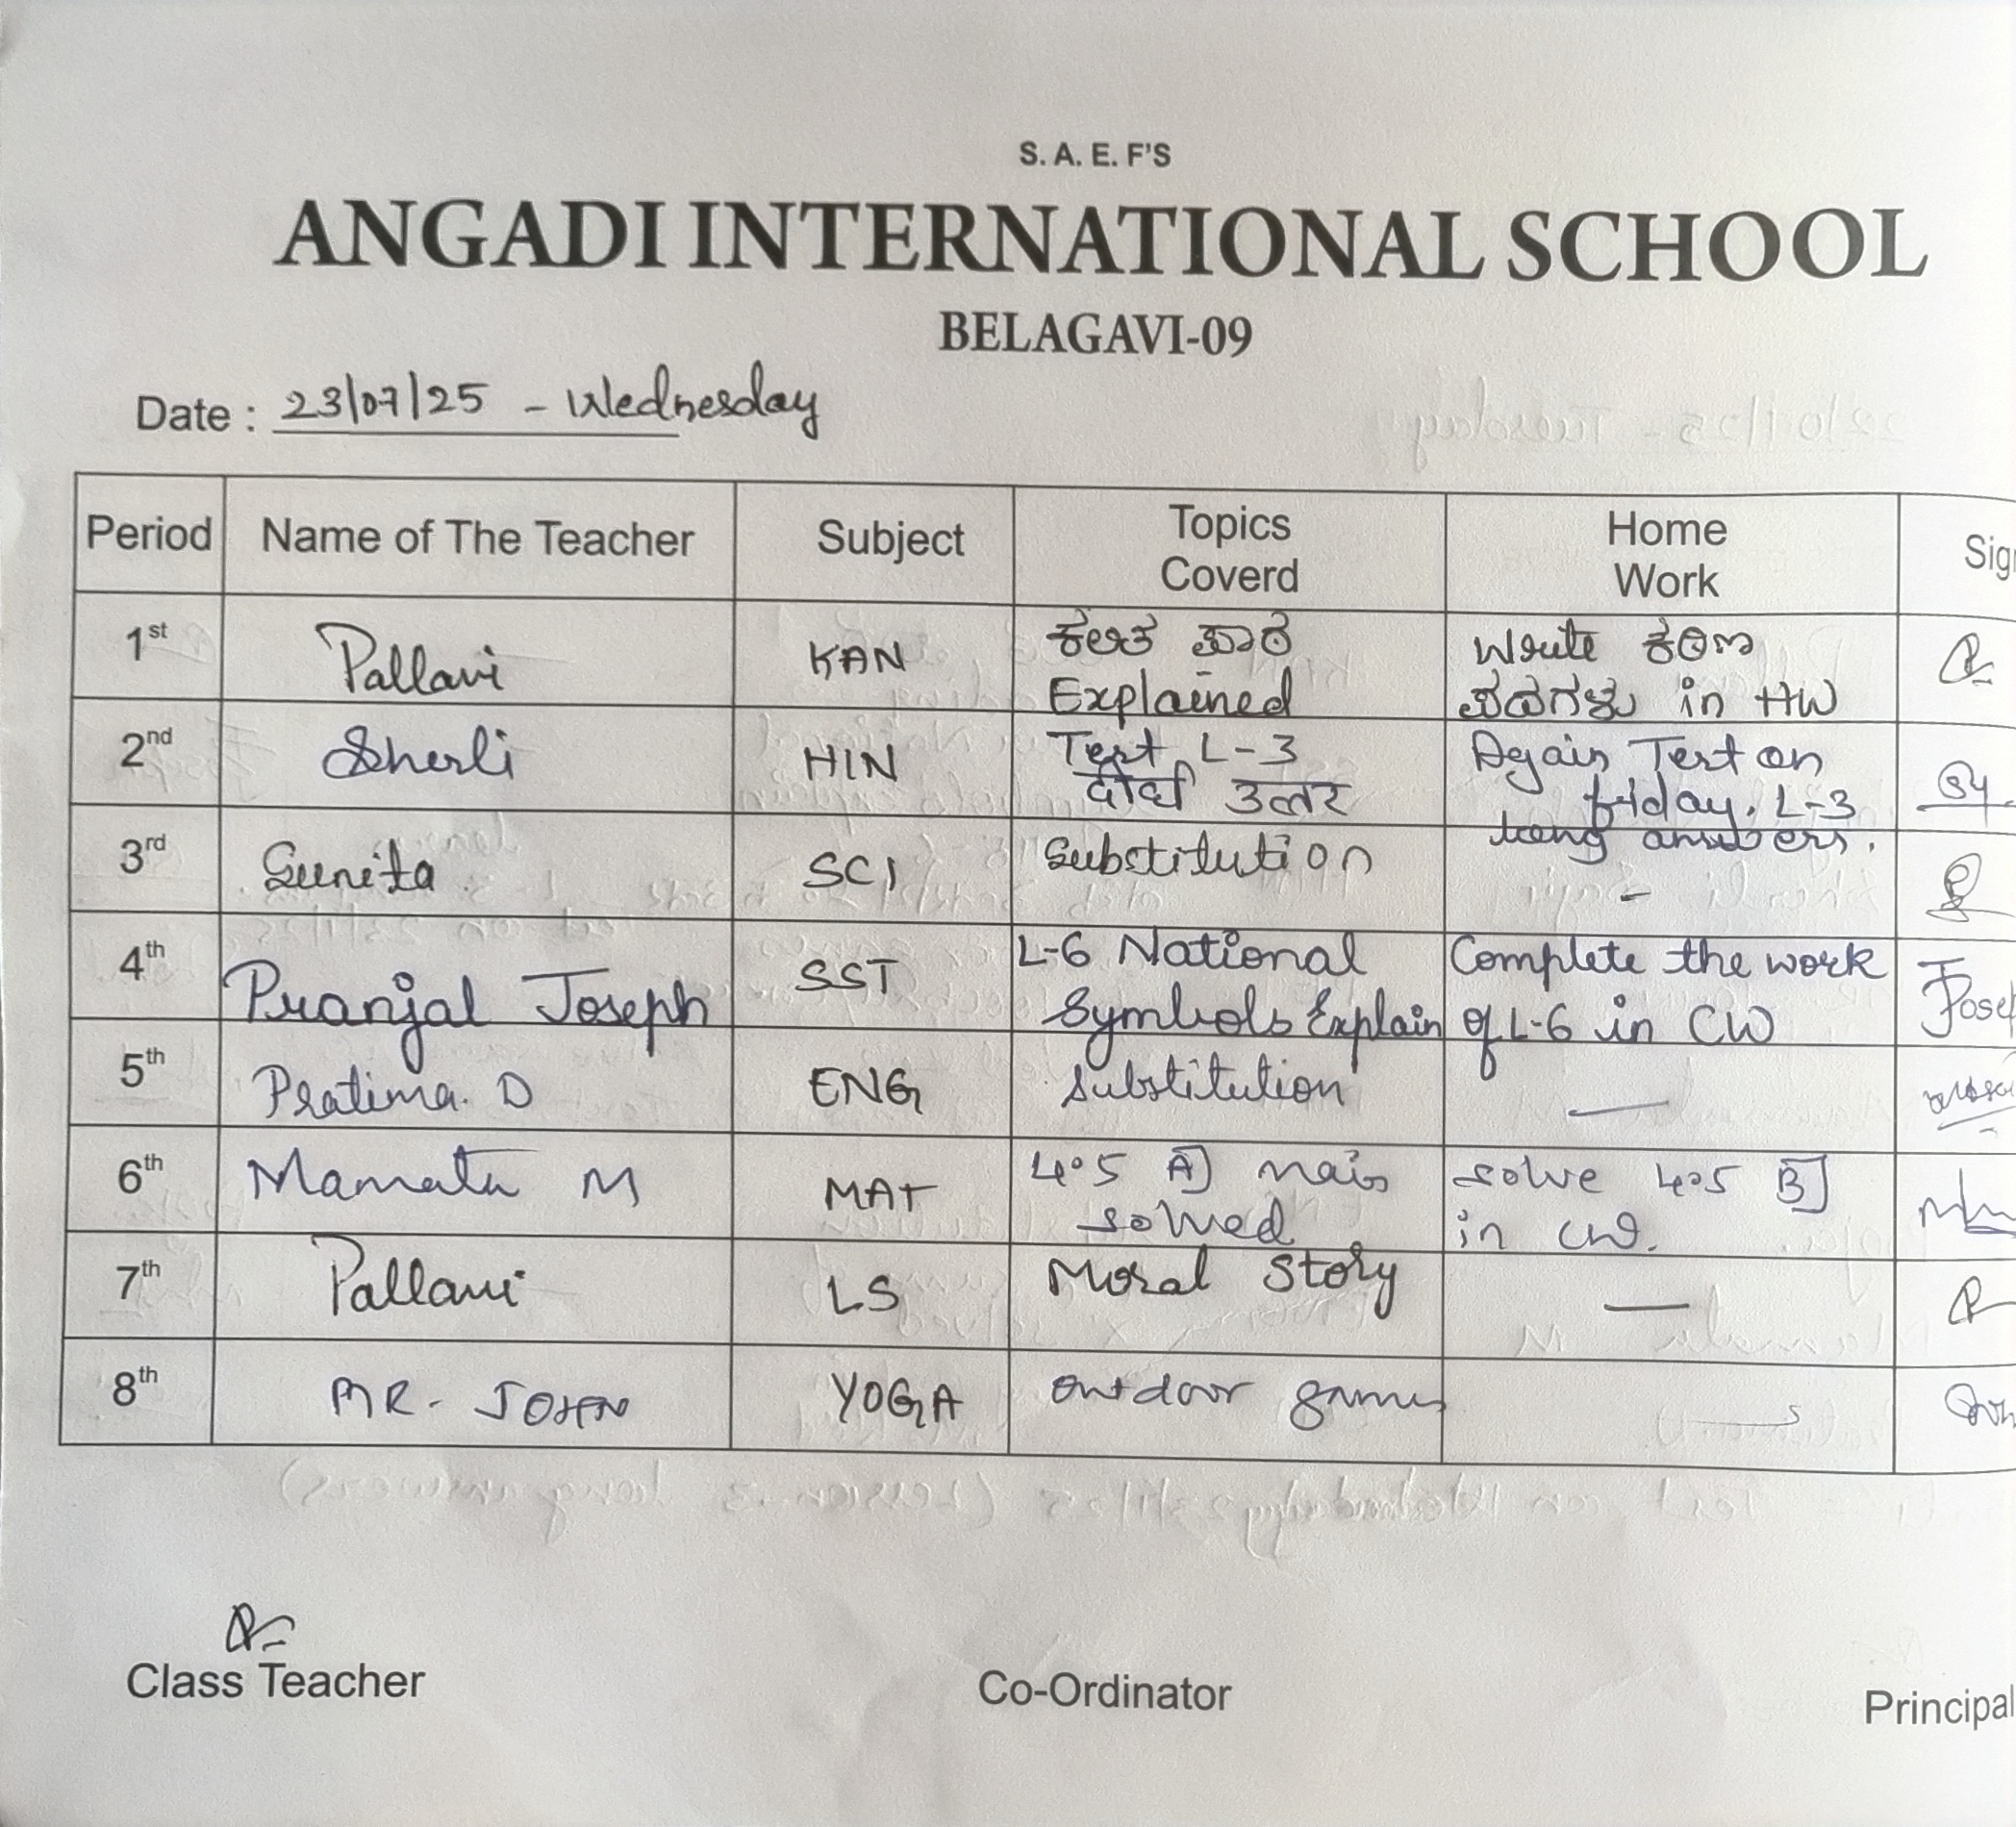 S. A. E. F'S
ANGADI INTERNATIONAL SCHOOL
BELAGAVI-09
Date : 23/07/25 - Wednesday
Period Name of The Teacher Subject Topics Coverd Home Work
1st Pallavi KAN Explained Write ಕಠಿಣ ಪದಗಳು in HW
2nd Sherli HIN Test L-3 दीर्घ उत्तर Again Test on friday. L-3 long answers.
3rd Sunita SCI Substitution -
4th Pranjal Joseph SST L-6 National Symbols Explain Complete the work of L-6 in CW
5th Pratima. D ENG Substitution —
6th Mamata M MAT 4.5 A] main solved solve 4.5 B] in CW.
7th Pallavi LS Moral Story —
8th MR. JOHN YOGA outdoor games
Class Teacher Co-Ordinator Principal